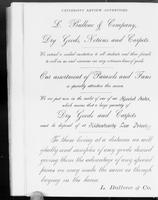 UNIVERSITY REVIEW ADVERTISER
L. Bullene & Company,
Dry Goods, Notions and Carpets.
We extend a cordial invitation to all students and their friends
to call on us and examine our very extensive line of goods.
Our assortment of Parasols and Fans
is specially attractive this season.
We are just now in the midst of one of our Special Sales,
which means that a large quantity of
Dry Goods and Carpets
must be disposed of at Extremely Low Prices.
To those living at a distance we will
gladly send samples of any goods desired
giving them the advantage of any special
prices we may make the same as though
buying in the house.
L. Bullene & Co.